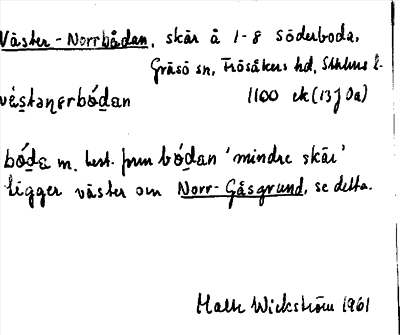 Väster-Norrbådan, skär å 1-8 Söderboda,
Gräsö sn, Frösåkers hd, Sthlms l.
vèstanɛrbó̱dan 1100 ek (13J 0a)
bó̱da m. best. form bó̱dan 'mindre skär'
ligger väster om Norr-Gåsgrund, se detta.
Malte Wickström 1961